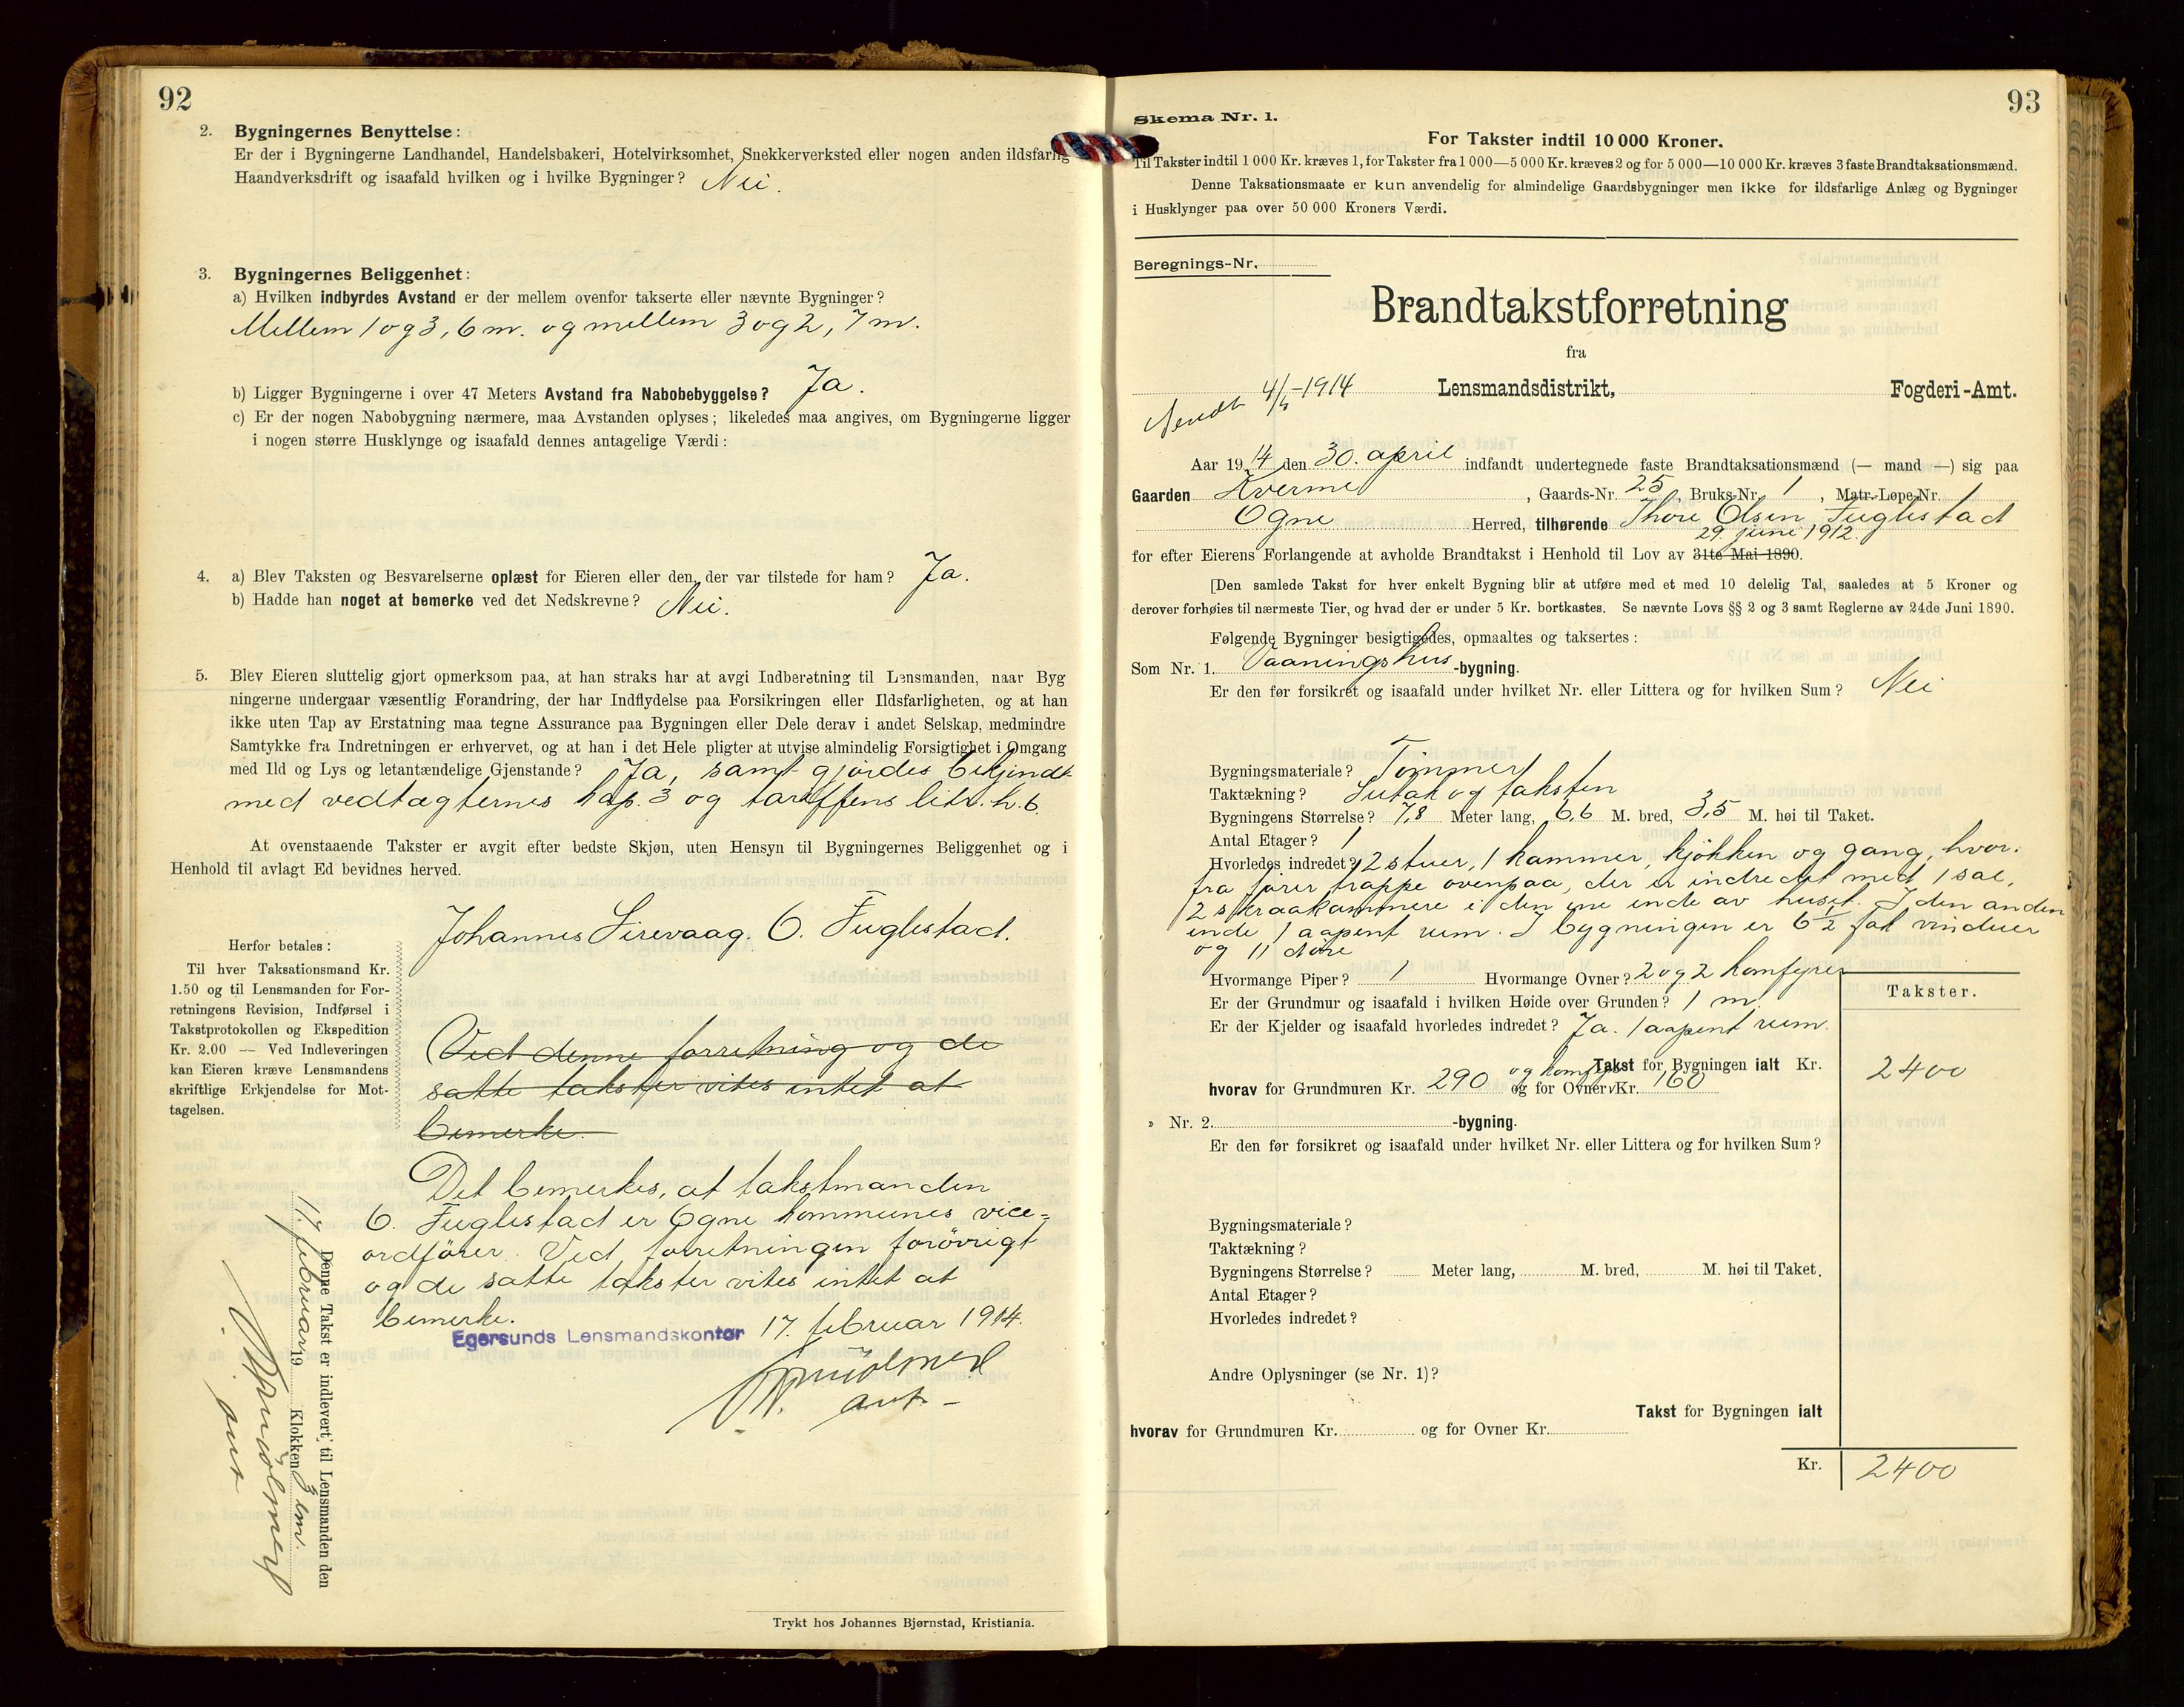 92
2. Bygningernes Benyttelse:
Er der i Bygningerne Landhandel, Handelsbakeri, Hotelvirksomhet, Snekkerverksted eller nogen anden ildsfarlig
Haandverksdrift og isaafald hvilken og i hvilke Bygninger? Nei.
3. Bygningernes Beliggenhet:
a) Hvilken indbyrdes Avstand er der mellem ovenfor takserte eller nævnte Bygninger?
Mellem 1 og 3, 6 m. og mellem 3 og 2, 7 m.
b) Ligger Bygningerne i over 47 Meters Avstand fra Nabobebyggelse? Ja.
c) Er der nogen Nabobygning nærmere, maa Avstanden oplyses; likeledes maa angives, om Bygningerne ligger
i nogen større Husklynge og isaafald dennes antagelige Værdi:
4. a) Blev Taksten og Besvarelserne oplæst for Eieren eller den, der var tilstede for ham? Ja.
b) Hadde han noget at bemerke ved det Nedskrevne? Nei.
5. Blev Eieren sluttelig gjort opmerksom paa, at han straks har at avgi Indberetning til Lensmanden, naar Byg
ningerne undergaar væsentlig Forandring, der har Indflydelse paa Forsikringen eller Ildsfarligheten, og at han
ikke uten Tap av Erstatning maa tegne Assurance paa Bygningen eller Dele derav i andet Selskap, medmindre
Samtykke fra Indretningen er erhvervet, og at han i det Hele pligter at utvise almindelig Forsigtighet i Omgang
med Ild og Lys og letantændelige Gjenstande? Ja, samt gjordes bekjendt
med vedtægternes kap. 3 og tariffens litr. h. 6.
At ovenstaaende Takster er avgit efter bedste Skjøn, uten Hensyn til Bygningernes Beliggenhet og i
Henhold til avlagt Ed bevidnes herved.
Johannes Sirevaag. O. Fuglestad.
Herfor betales:
Til hver Taksationsmand Kr.
1.50 og til Lensmanden for For-
retningens Revision, Indførsel i
Takstprotokollen og Ekspedition
Kr. 2.00 — Ved Indleveringen
kan Eieren kræve Lensmandens
skriftlige Erkjendelse for Mot-
tagelsen.
Ved denne forretning og de
satte takster vites intet at
bemerke.
Det bemerkes, at takstmanden
O. Fuglestad er Ogne kommunes vice=
ordfører. Ved forretningen forøvrigt
og de satte takster vites intet at
bemerke.
Egersunds Lensmandskontor 17. februar 1914.
Denne Takst er indlevert til Lensmanden den
17. februar 19 Klokken 3 em.
Trykt hos Johannes Bjørnstad, Kristiania.
93
Skema Nr. 1.
For Takster indtil 10 000 Kroner.
Til Takster indtil 1 000 Kr. kræves 1, for Takster fra 1 000—5 000 Kr. kræves 2 og for 5 000—10 000 Kr. kræves 3 faste Brandtaksationsmænd.
Denne Taksationsmaate er kun anvendelig for almindelige Gaardsbygninger men ikke for ildsfarlige Anlæg og Bygninger
i Husklynger paa over 50 000 Kroners Værdi.
Beregnings-Nr.
Brandtakstforretning
fra
Lensmandsdistrikt, Fogderi-Amt.
Sendt 4/5-1914
Aar 1914 den 30. april indfandt undertegnede faste Brandtaksationsmænd (— mand —) sig paa
Gaarden Kverme, Gaards-Nr. 25, Bruks-Nr. 1, Matr.-Løpe-Nr.
Ogne Herred, tilhørende Thore Olsen Fuglestad
29. juni 1912.
for efter Eierens Forlangende at avholde Brandtakst i Henhold til Lov av 31te Mai 1890.
[Den samlede Takst for hver enkelt Bygning blir at utføre med et med 10 delelig Tal, saaledes at 5 Kroner og
derover forhøies til nærmeste Tier, og hvad der er under 5 Kr. bortkastes. Se nævnte Lovs §§ 2 og 3 samt Reglerne av 24de Juni 1890.
Følgende Bygninger besigtigedes, opmaaltes og taksertes:
Som Nr. 1. Vaaningshus -bygning.
Er den før forsikret og isaafald under hvilket Nr. eller Littera og for hvilken Sum? Nei
Bygningsmateriale? Tømmer
Taktækning? Sutak og taksten
Bygningens Størrelse? 7,8 Meter lang, 6,6 M. bred, 3,5 M. høi til Taket.
Antal Etager? 1
Hvorledes indredet? 2 stuer, 1 kammer, kjøkken og gang, hvor.
fra fører trappe ovenpaa, der er indredet med 1 sal,
2 skraakammere i den ene ende av huset. I den anden
ende 1 aapent rum. I bygningen er 6 1/2 fat vinduer
og 11 døre
Hvormange Piper? 1 Hvormange Ovner? 2 og 2 komfyrer
Takster.
Er der Grundmur og isaafald i hvilken Høide over Grunden? 1 m.
Er der Kjelder og isaafald hvorledes indredet? Ja. 1 aapent rum.
Takst for Bygningen ialt Kr. 2400
og komfyr
hvorav for Grundmuren Kr. 290 og for Ovner Kr. 160
» Nr. 2. -bygning.
Er den før forsikret og isaafald under hvilket Nr. eller Littera og for hvilken Sum?
Bygningsmateriale?
Taktækning?
Bygningens Størrelse? Meter lang, M. bred, M. høi til Taket.
Antal Etager?
Hvorledes indredet?
Andre Oplysninger (se Nr. 1)?
Takst for Bygningen ialt
hvorav for Grundmuren Kr. og for Ovner Kr.
Kr. 2400